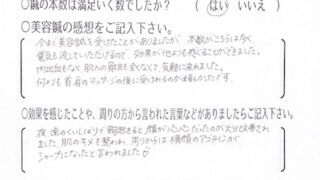 ○鍼の本数は満足いく数でしたか？ （ はい いいえ ）
○美容鍼の感想をご記入下さい。
今まで美容鍼を受けたことがありましたが、本数がこちらは多く
電気も流していただけるので、効果が他よりも感じることができました。
内出血もなく 肌への負担も全くなくて気軽に来れました。
何よりも首肩のマッサージの後に受けられるのが嬉しかったです。
○効果を感じたことや、周りの方から言われた言葉などがありましたらご記入下さい。
夜、歯のくいしばりで朝起きると顔がパンパンだったのが大分改善され
ました。肌のキメも整われ、周りからは横顔のフェイスラインが
シャープになったと言われました